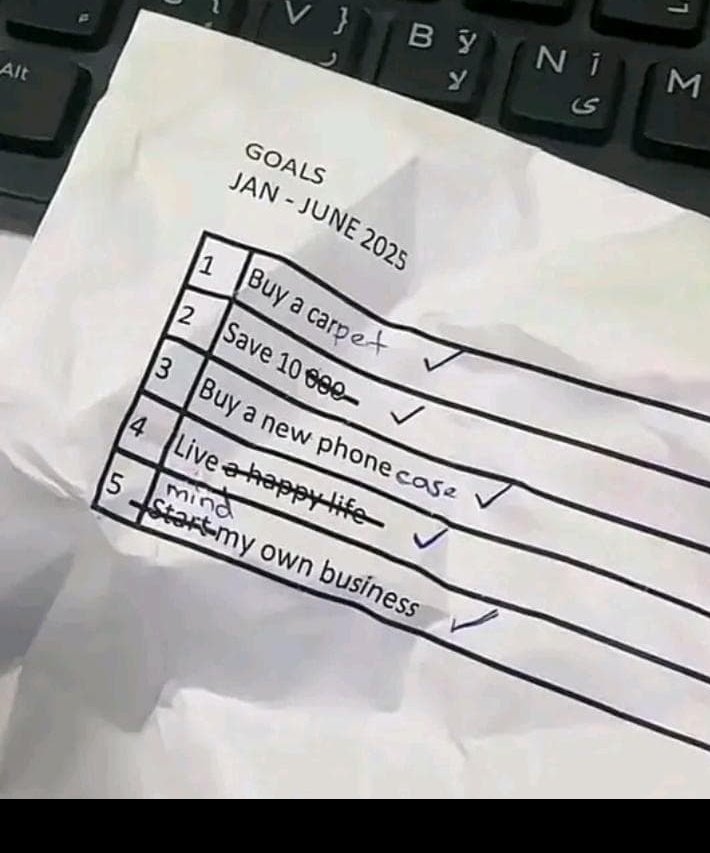 V }
ر
B لآ
لا
N آ
ى
M
Alt
GOALS
JAN - JUNE 2025
1 Buy a carpet ✓
2 Save 10 000 ✓
3 Buy a new phone case ✓
4 Live a happy life ✓
mind
5 Start my own business ✓